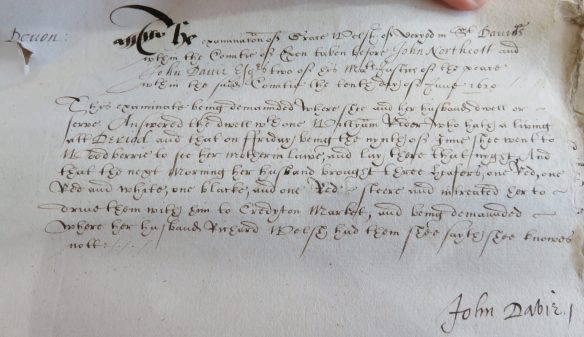 Devon:
The examinaton of Grace Welsh of in St Davids
within the Countie of Exon taken before John Northcott and
John Davie Esqrs two of his Maties Justices of the peace
within the said Countie the tenth day of June 1620
Thys examinate being demanded where shee and her husband dwell or
serve Answered the dwell with one Wyllyam Rider who hath a living
att and that on ffriday being the nynth of June shee went to
Woodberrie to see her mother in lawe, and lay there that nyght And
that the next Morning her husband brought three heafers, one Red, one
Red and white, one blacke, and one Red steere and intreated her to
drive them with him to Credyton Market, and being demanded
where her husband Richard Welsh had them shee sayth shee knowes
nott
John Davie